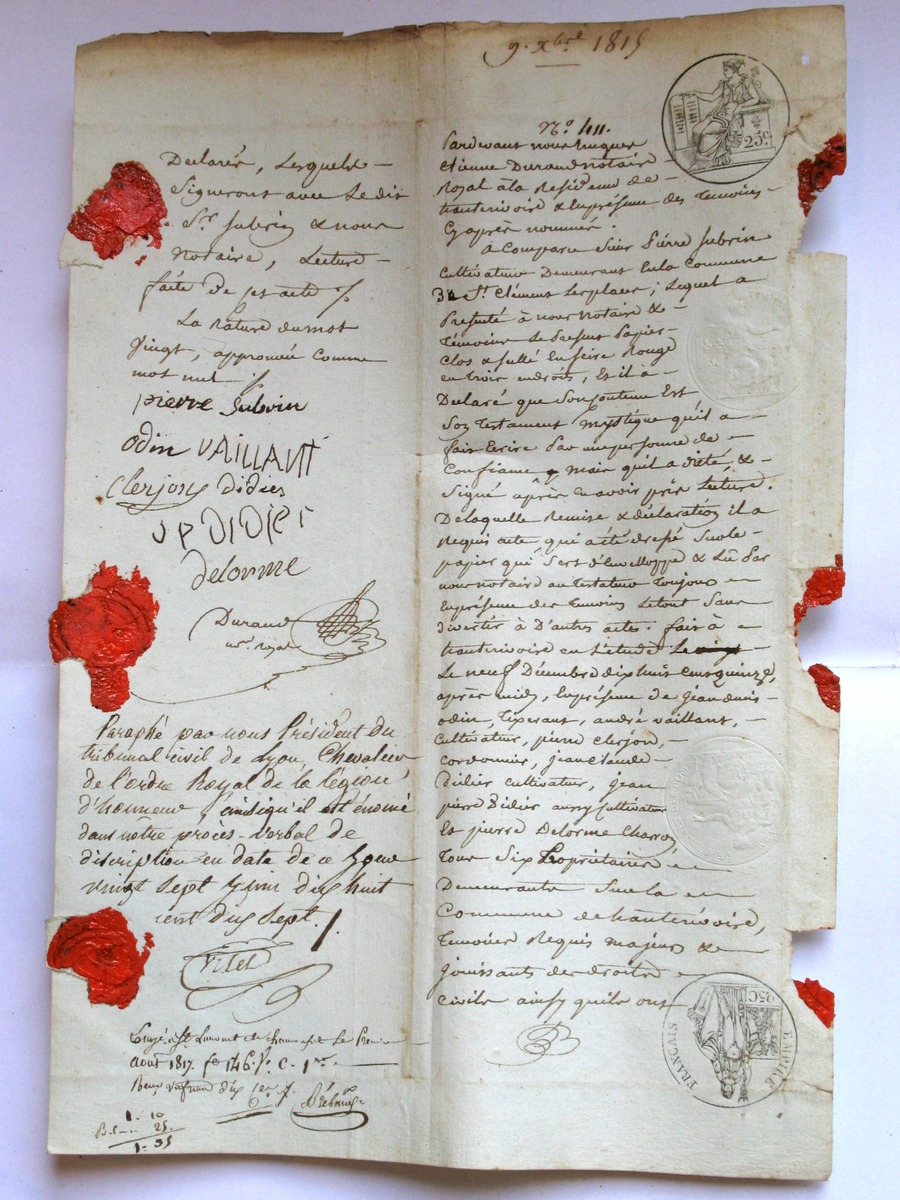 9. xbre 1815
No. 411.
25c.
Pardevant nous hugues
Etienne Durand notaire
Royal à la Residence de
hauterivoire & En présence des Temoins
Cy après nommés.
à Comparu Sieur Pierre Jubrin
Cultivateur Demeurant En la Commune
de St. Clément Les places; Lequel a
Presenté à nous notaire &
Témoins Le Present Papier
Clos & sellé En Seire Rouge
en trois endroits, Et il à
Declaré que Son Contenu Est
Son Testament mystique qu'il a
fait Ecrire Par une personne de
Confiance, mais qu'il a dicté, &
Signé après en avoir pris Lecture.
De laquelle Remise & déclaration il a
Requis acte qui a été dressé Sur le
papier qui Sert d'Envelloppe & Lu Par
nous notaire au Testateur Toujours en
En présence des Temoins Le tout Sans
divertir à D'autres actes. fait à
hauterivoire en L'etude
Le neuf Décembre dix huit Cent quinze,
après midy, En présence de jean denis
odin, Tixerant, andré vaillant,
Cultivateur, pierre clerjon,
Cordonnier, jean claude
didier cultivateur, jean
pierre Didier aussy Cultivateur
Et pierre Delorme Charron
Tous Six Propriétaires
Demeurants Sur la
Commune de hauterivoire,
Temoins Requis majeurs &
jouissants des droits
Civils ainsy qu'ils ont
EMPIRE FRANÇAIS
25C.
Declarés, Lesquels
Signerons avec Le dit
Sr. Jubrin & nous
Notaire, Lecture
faite de ces acte ./.
La Rature du mot
Vingt, approuvée Comme
mot nul ./.
pierre Jubrin
odin VAILLANT
Clerjon Didier
JP DIDIER
Delorme
Durand
not. royal
Paraphé par nous Président du
tribunal civil de Lyon, Chevalier
de l'ordre Royal de la légion
d'honneur, ainsi qu'il est énoncé
dans notre procès-verbal de
discription en date de ce Jour
vingt sept Juin dix huit
cent dix sept./.
Vitet
Enrgé à St. Laurent de Chamousset Le Premier
Aout 1817. fo 146. Vo. C. 1re.
Reçu un franc dix Ces
1. 10
25.
1. 35